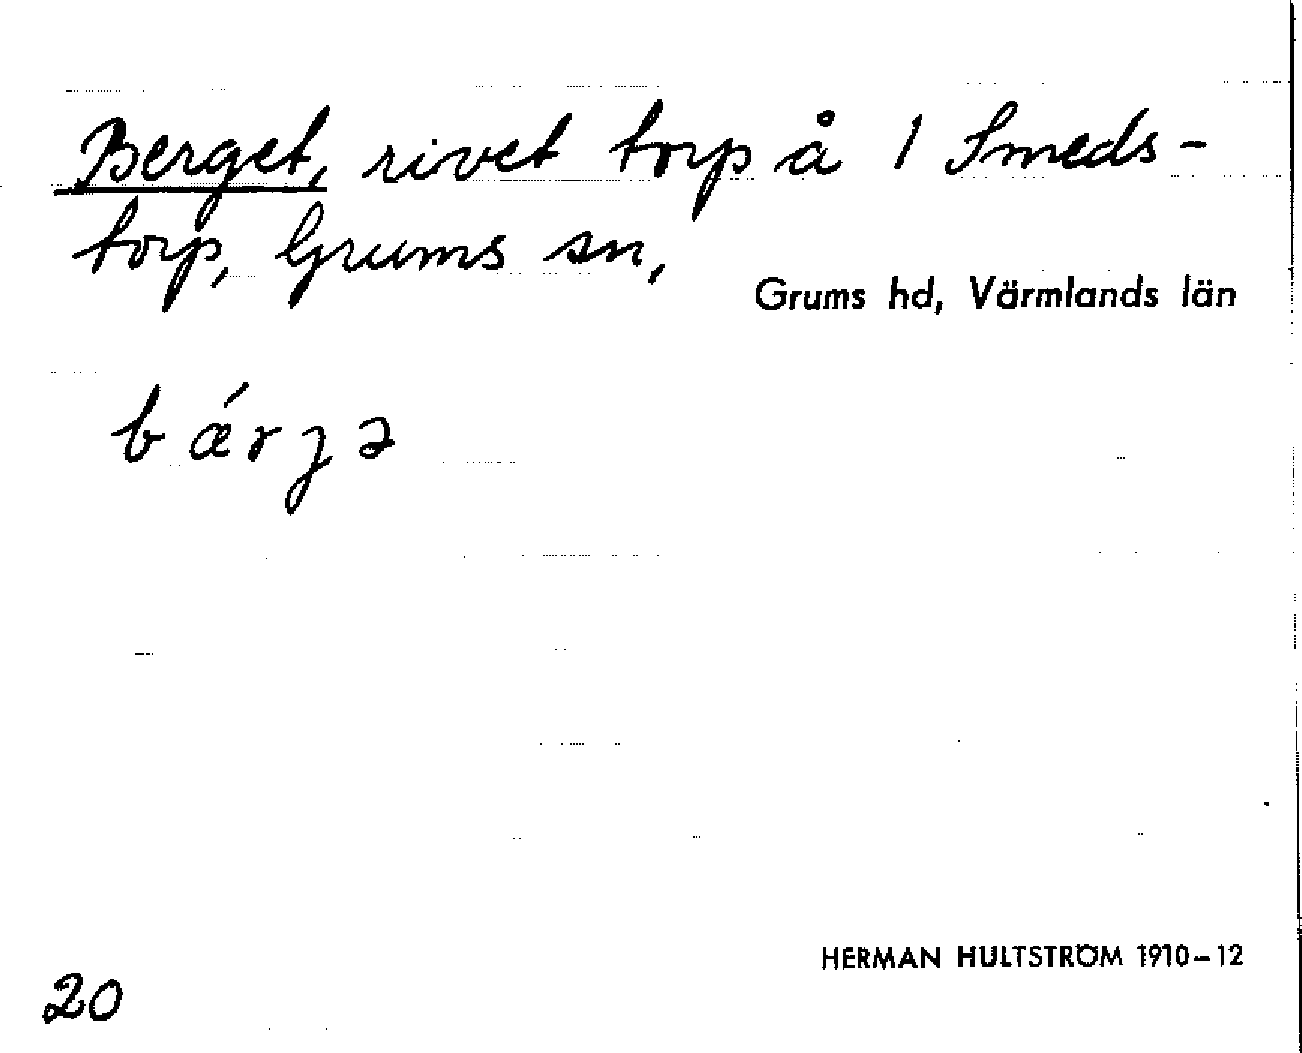 Berget, rivet torp å 1 Smeds-
torp, Grums sn,
Grums hd, Värmlands län
bǽrgə
HERMAN HULTSTRÖM 1910–12
20